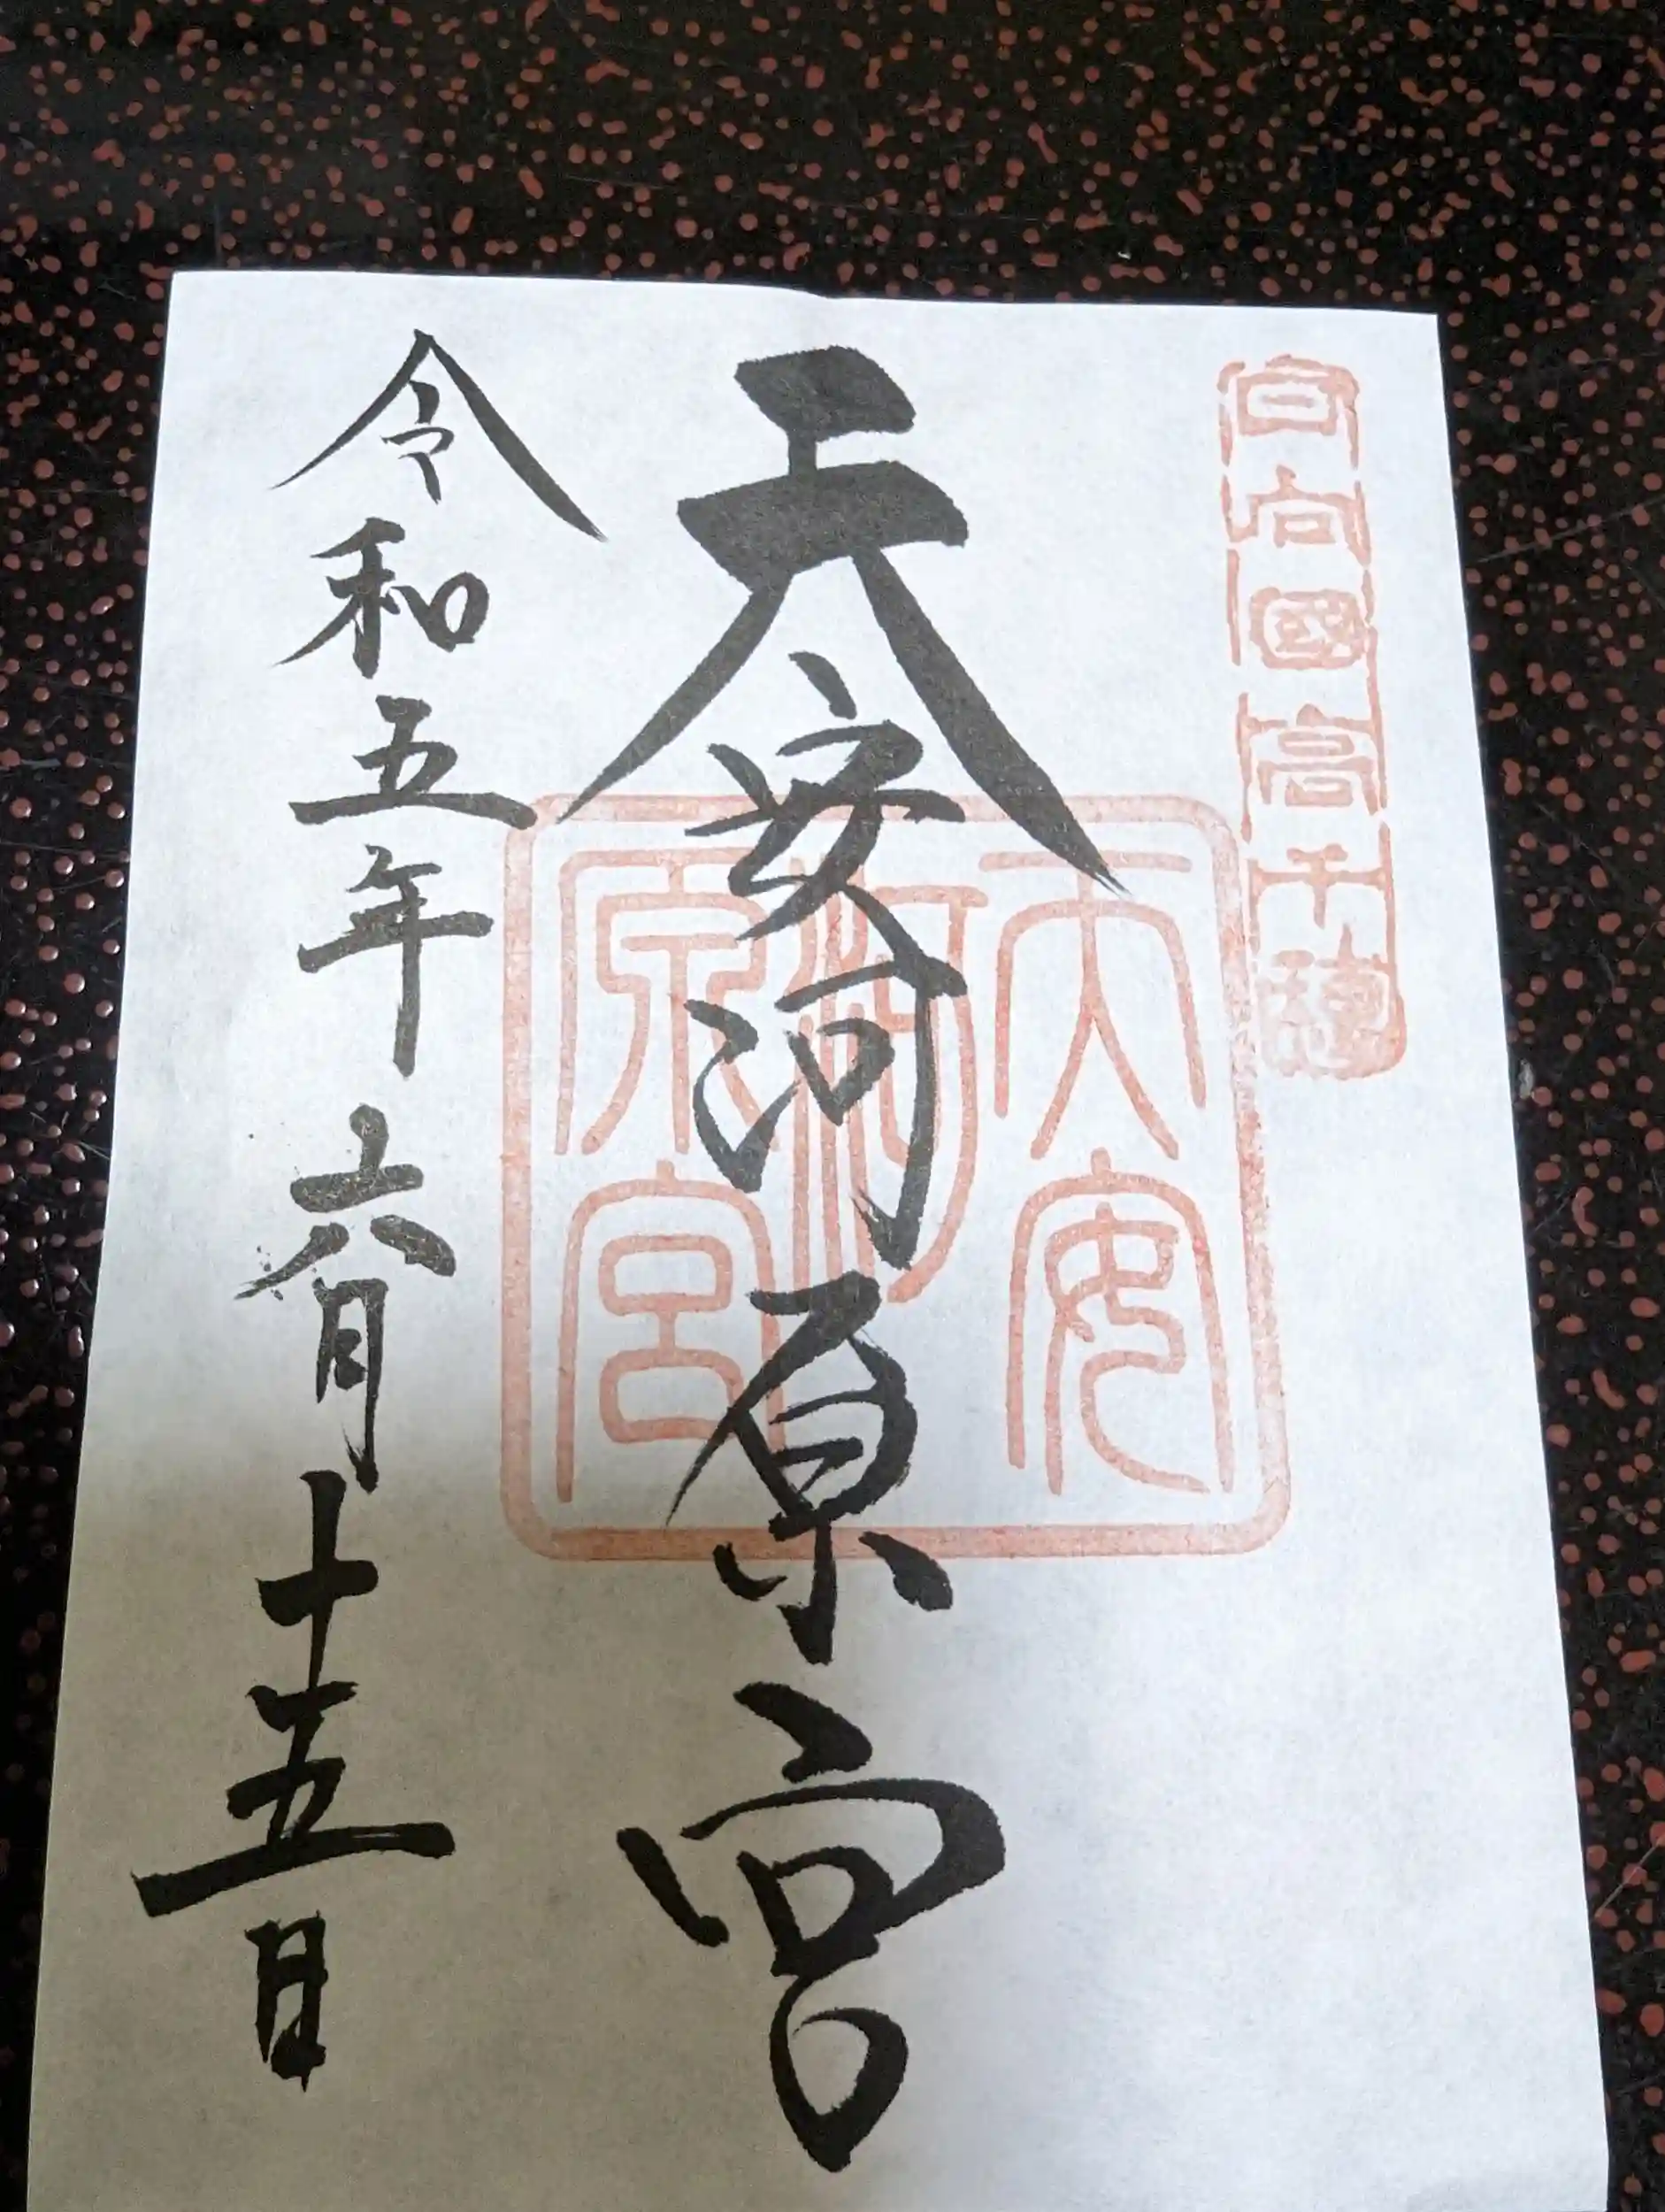 日向國高千穂
天安河原宮
天安河原宮
令和五年六月十五日